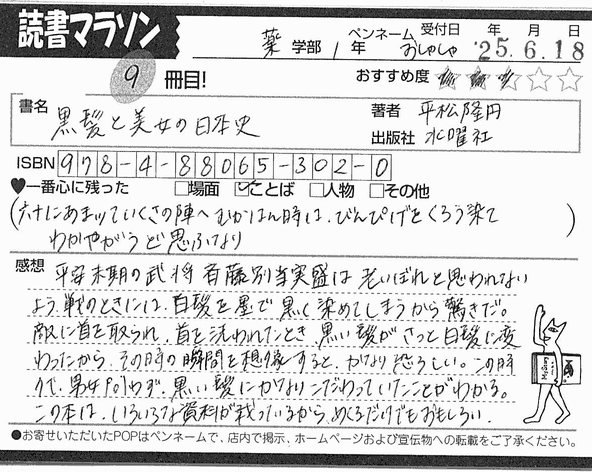 読書マラソン
薬 学部 1 年 ペンネーム おしゃしゃ 受付日 '25.6.18 年 月 日
9 冊目! おすすめ度 ★★★☆☆
書名 黒髪と美女の日本史
著者 平松隆円
出版社 水曜社
ISBN 978-4-88065-302-0
♥一番心に残った □場面 ☑ことば □人物 □その他
(六十にあまッていくさの陣へむかはん時は、びんぴげをくろう染て
わかやがうど思ふなり)
感想 平安末期の武将 斉藤別当実盛は 老いぼれと思われない
よう、戦のときには、白髪を墨で黒く染めてしまうから驚きだ。
敵に首を取られ、首を洗われたとき、黒い髪がさっと白髪に変
わったから、その時の瞬間を想像すると、かなり恐ろしい。この時
代、男女問わず、黒い髪にかなりこだわっていたことがわかる。
この本は、いろいろな資料が載っているから、めくるだけでもおもしろい.
●お寄せいただいたPOPはペンネームで、店内で掲示、ホームページおよび宣伝物への転載をご了承ください。